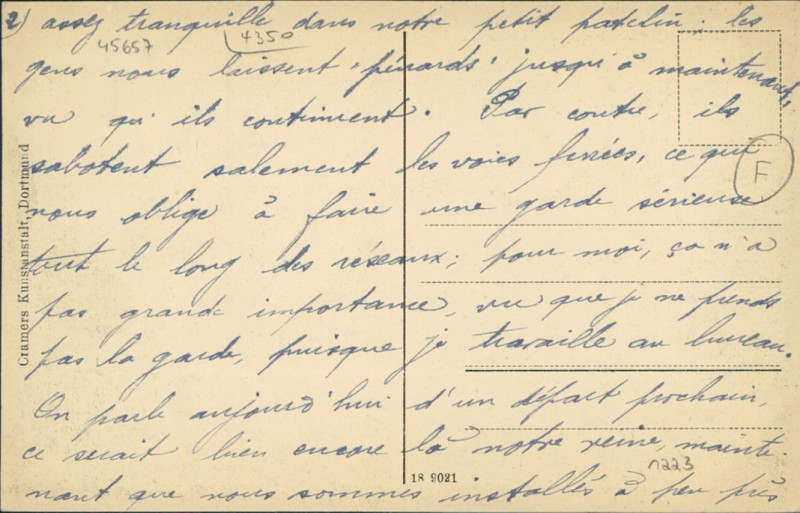 2) assez tranquille dans notre petit patelin; les
45657
4350
gens nous laissent "pénards" jusqu'à maintenant,
vu qu'ils continuent. Par contre, ils
sabotent salement les voies ferrées, ce qui
F
nous oblige à faire une garde sérieuse
tout le long des réseaux; pour moi, ça n'a
pas grande importance, vu que je ne prends
pas la garde, puisque je travaille au bureau.
On parle aujourd'hui d'un départ prochain,
ce serait bien encore là notre veine, mainte-
nant que nous sommes installés à peu près
1223
18 9021
Cramers Kunstanstalt, Dortmund